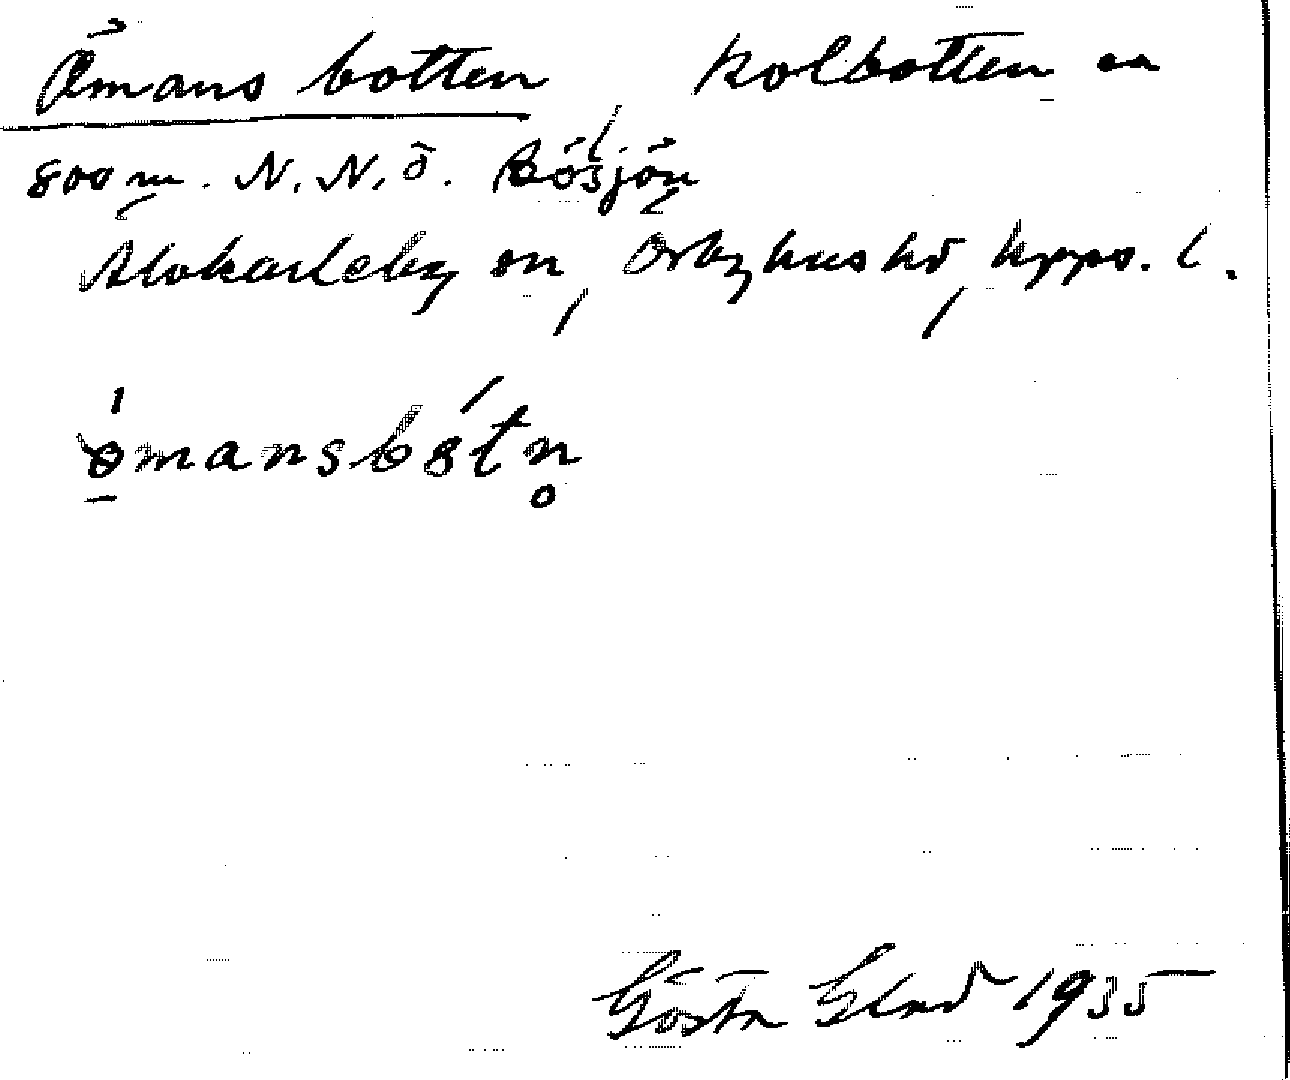 Ömans botten, kolbotten ca
800 m. N.N.Ö. Bösjön
Älvkarleby sn, Örbyhus hd, Upps. l.
ömansbȯtn̥
Gösta Glad 1935